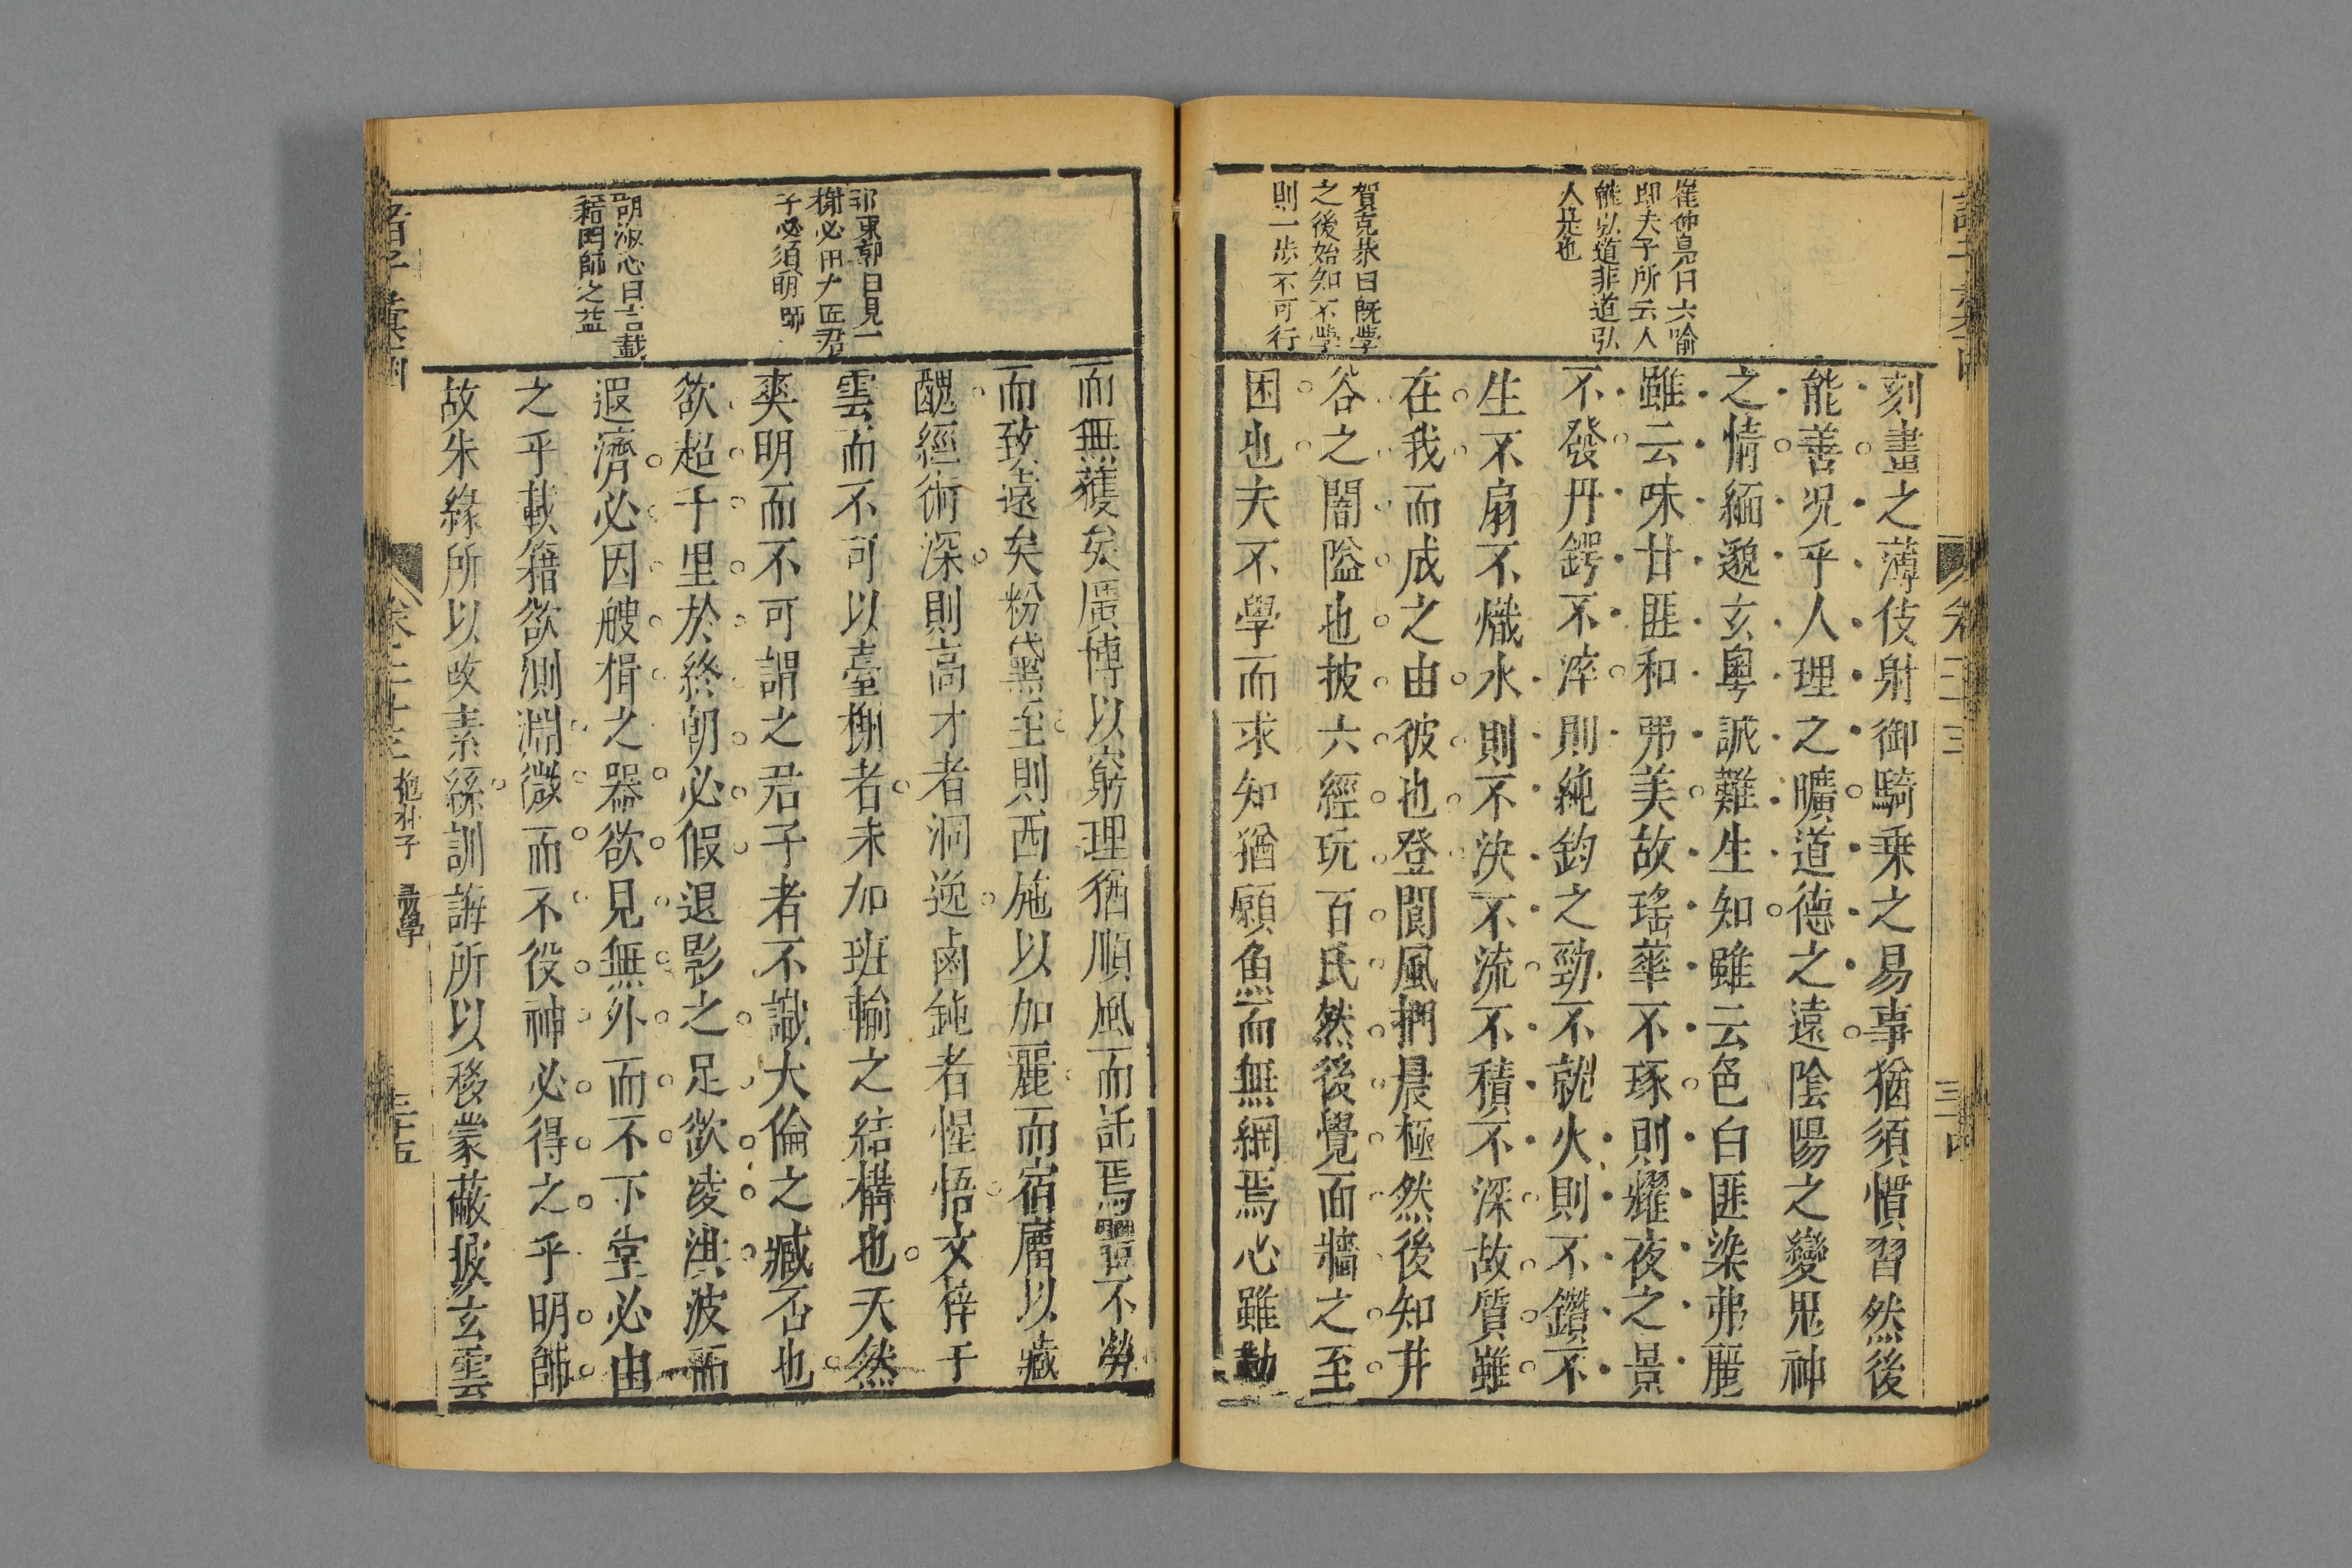 崔仲鳧曰六喻
即夫子所云人
能弘道非道弘
人是也
賀克恭曰旣學
之後始知不學
則一步不可行
刻畫之薄伎射御騎乗之易事猶須慣習然後
能善况乎人理之曠道德之遠陰陽之變鬼神
之情緬邈玄奥誠難生知雖云色白匪染弗麗
雖云味甘匪和弗美故瑤華不琢則耀夜之景
不發丹鍔不淬則純鈞之勁不就火則不鑽不
生不扇不熾水則不決不流不積不深故質雖
在我而成之由彼也登閬風捫晨極然後知井
谷之闇隘也披六經玩百氏然後覺面牆之至
困也夫不學而求知猶願魚而無網焉心雖勤
卷二十三
三十四
祁東郭曰見一
榭必用大匠君
子必須明師
胡淑心曰言載
籍明師之益
而無獲矣廣博以窮理猶順風而託焉體不勞
而致遠矣粉黛至則西施以加麗而宿瘤以藏
醜經術深則高才者洞逸鹵鈍者惺悟文梓干
雲而不可以臺榭者未加班輸之結構也天然
爽明而不可謂之君子者不識大倫之臧否也
欲超千里於終朝必假退影之足欲凌洪波而
遐濟必因艘楫之器欲見無外而不下堂必由
之乎載籍欲測淵微而不役神必得之乎明師
故朱綠所以改素絲訓誨所以移蒙蔽披玄雲
諸子彙函
卷二十三
抱朴子
勗學
三十五